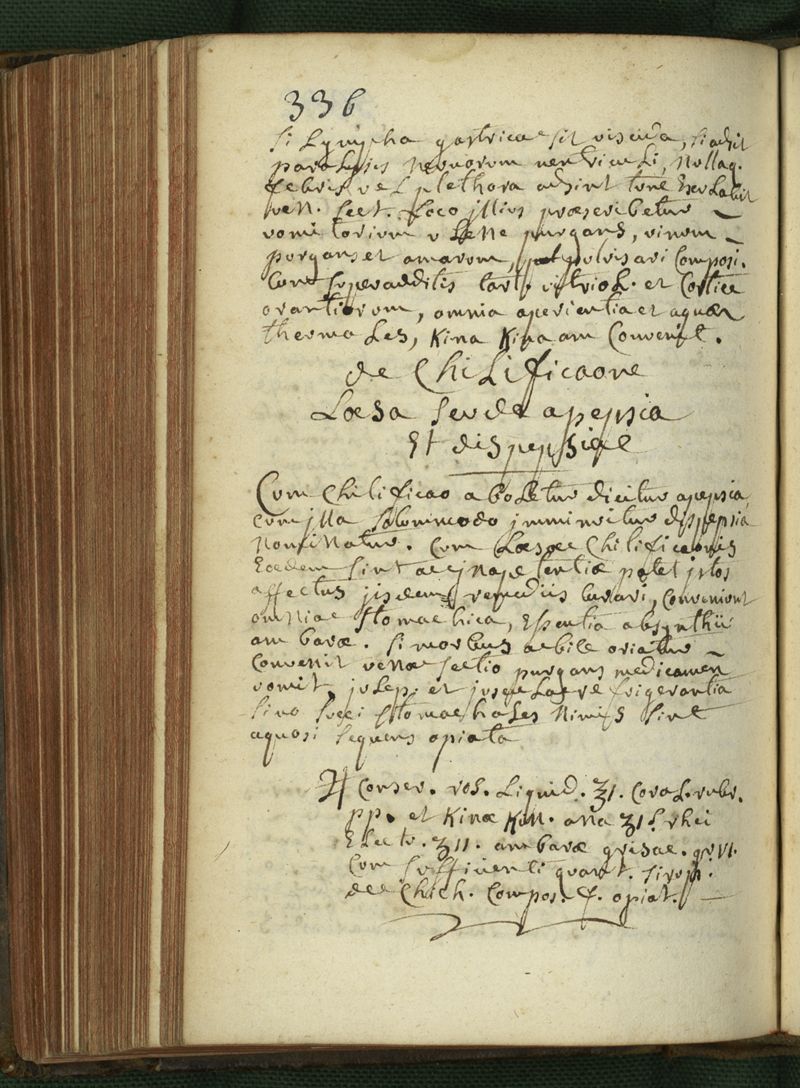 336
si Lympha gastrica sit viscida, si adsit
paralysis nervorum ventriculi, Nullaq.
febris vel plethora adsint tunc
ven. sect. Loco illius præscribetur –
vomitorium v Lene purgans, vinum –
purgans et amarum, pulvis ari Composi.
cum superadditis tart. vitriol. et Cortice
orantiorum, omnia aperientia et aquæ
thermales, Kina Kinaam Convenit.
de Chilificaone
Læsa seu de apepsia
Et dispepsiae
Cum Chilificao aboletur dicitur apepsia,
cum illa solummodo imminuitur dispepsia
Nominatur. Cum Læsae Chilificaonis
Eaedem sint ac inapetentiæ patet istos
affectus iisdem remediis curari, conveniunt
omnia stomachica, Essentia absynthii
ambaræ. si morbus a bile oriatur –
Convenit venæ sectio purgans medicamen
vomit. julep. et juscula refrigerantia
sino succi stomachales Nimis sint
aquosi sequens opiata
♃ Conser. ros. Liquid. ʒι. Coral. rubr.
pp. et Kinæ Kin. ana ʒι s. rhei
Elect. ʒιι. ambaræ grisae. gr vi.
Cum sufficienti quant. sirop.
de Chich. Compos. f. opiat. –